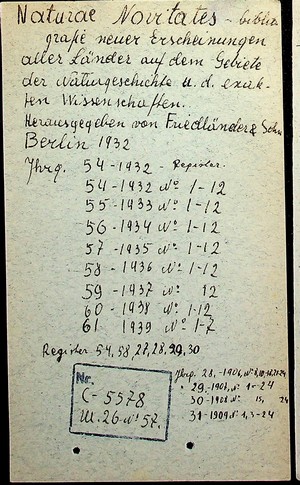 Naturae Novitates - biblio-
grafie neuer Erscheinungen
aller Länder auf dem Gebiete
der Naturgeschichte u. d. exak-
ten Wissenschaften.
Herausgegeben von Friedländer & Sohn
Berlin 1932
Jhrg. 54-1932 - Register.
54-1932 No 1-12
55-1933 No 1-12
56-1934 No 1-12
57-1935 No 1-12
58-1936 No 1-12
59-1937 No 12
60-1938 No 1-12
61 1939 No 1-7
Register 54, 58, 27, 28, 29, 30
Jhrg. 28, -1906,
29,-1907, No 1-24
30-1908 No 15, 24
31-1909 No 1,3-24
Nr.
C-5578
Ш.26 No 57.